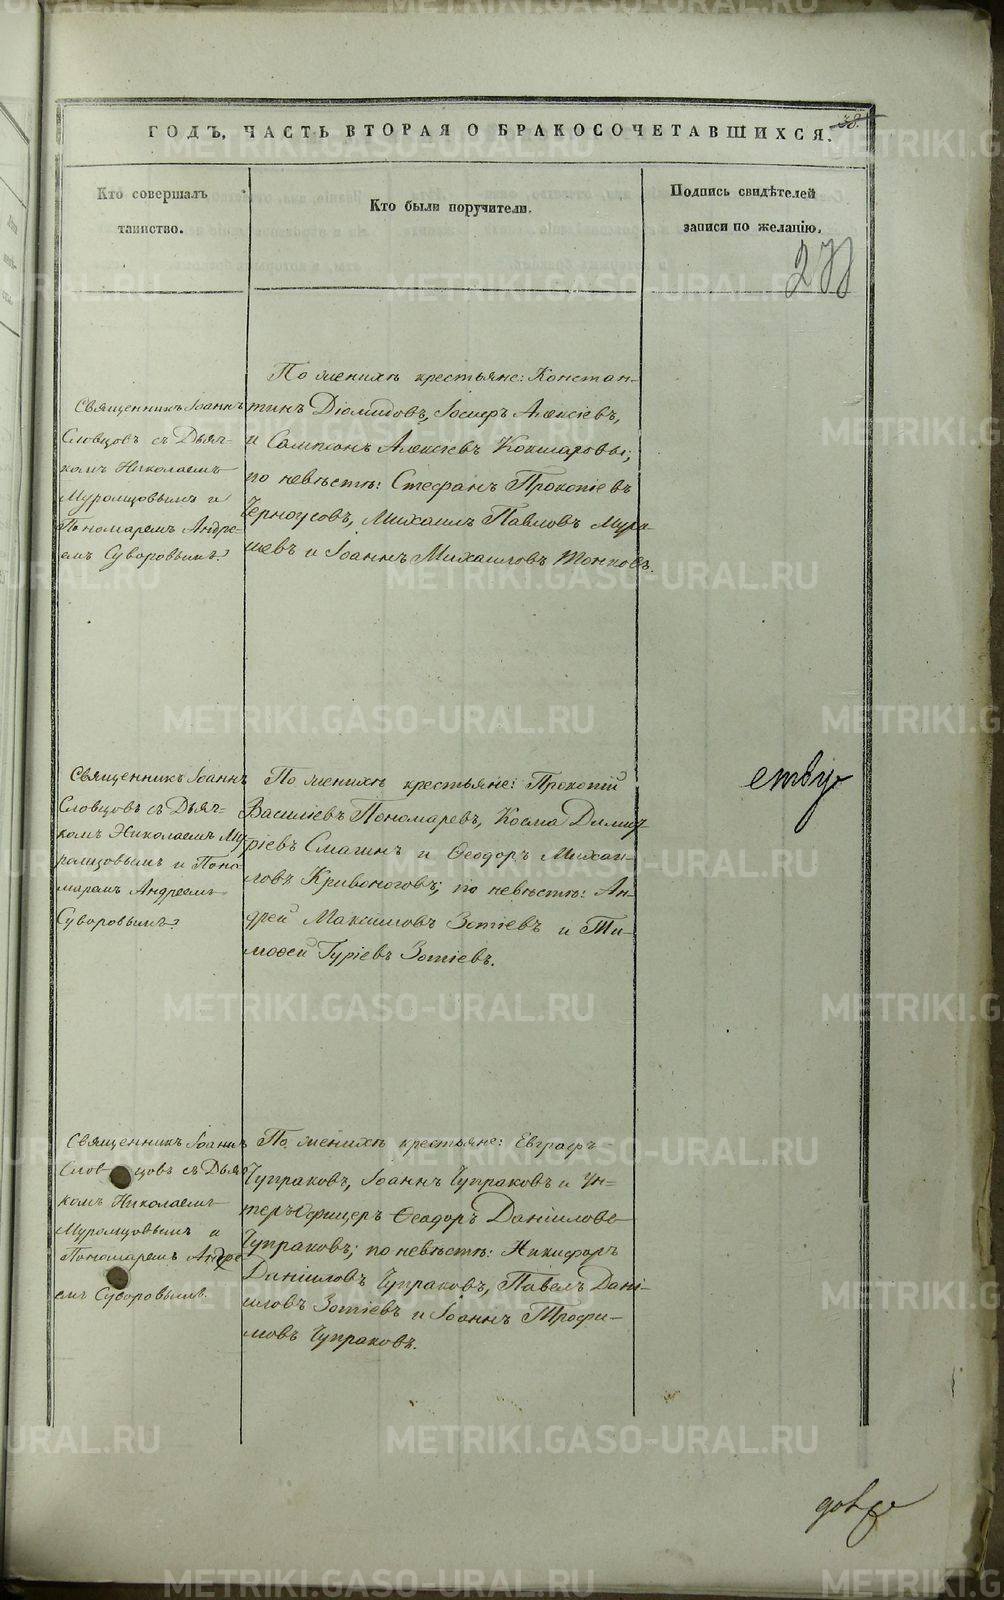 ГОДЪ, ЧАСТЬ ВТОРАЯ О БРАКОСОЧЕТАВШИХСЯ.
38.
Кто совершалъ
таинство.
Кто были поручители.
Подпись свидѣтелей
записи по желанію.
Священникъ Іоаннъ
Словцовъ съ Дьяч-
комъ Николаемъ
Муромцовымъ и
Пономаремъ Андре-
емъ Суворовымъ.
По женихѣ крестьяне: Констан-
тинъ Діомидовъ, Іосифъ Алексіевъ,
и Сампсонъ Алексіевъ Кокшаровы;
по невѣстѣ: Стефанъ Прокопіевъ
Черноусовъ, Михаилъ Павловъ Мура-
шевъ и Іоаннъ Михаиловъ Тонковъ.
Священникъ Іоаннъ
Словцовъ съ Дьяч-
комъ Николаемъ Му-
ромцовымъ и Поно-
маремъ Андреемъ
Суворовымъ.
По женихѣ крестьяне: Прокопій
Василіевъ Пономаревъ, Косма Димит-
ріевъ Смагинъ и Ѳеодоръ Михаи-
ловъ Кривоноговъ; по невѣстѣ: Ан-
дрей Максимовъ Зотіевъ и Ти-
моѳей Гуріевъ Зотіевъ.
Священникъ Іоаннъ
Словцовъ съ Дьяч-
комъ Николаемъ
Муромцовымъ и
Пономаремъ Андре-
емъ Суворовымъ.
По женихѣ крестьяне: Евграфъ
Чупраковъ, Іоаннъ Чупраковъ и Ун-
теръ Офицеръ Ѳеодоръ Даніиловъ
Чупраковъ; по невѣстѣ: Никифоръ
Даніиловъ Чупраковъ, Павелъ Дані-
иловъ Зотіевъ и Іоаннъ Трофи-
мовъ Чупраковъ.
METRIKI.GASO-URAL.RU